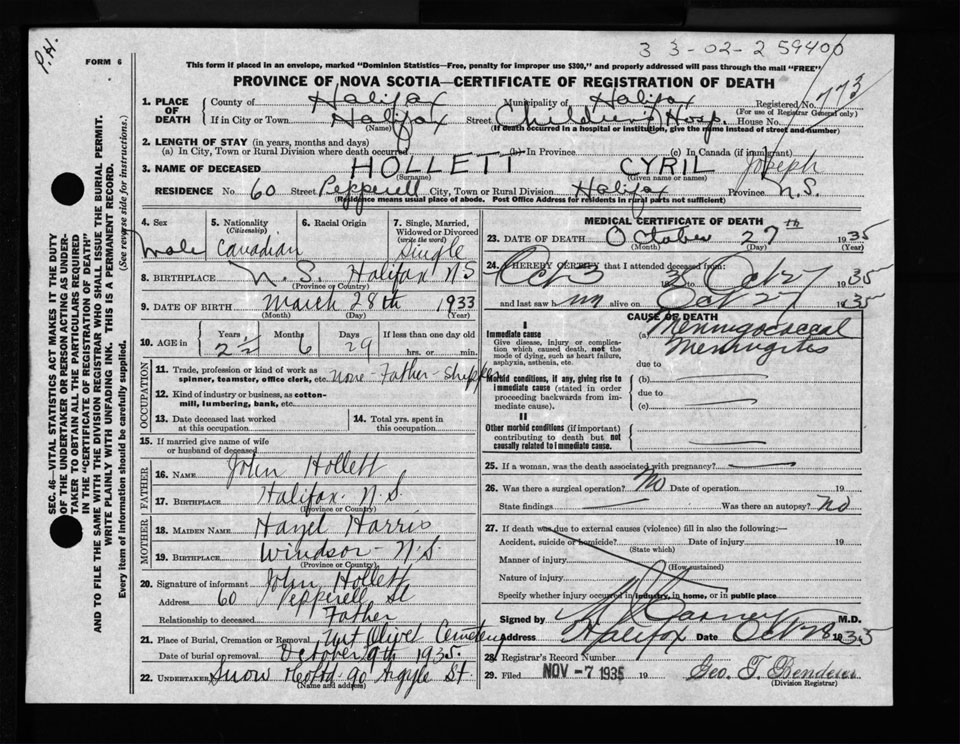 P.H.
33-02-2 59400
FORM 6
This form if placed in an envelope, marked "Dominion Statistics—Free, penalty for improper use $300," and properly addressed will pass through the mail "FREE"
PROVINCE OF NOVA SCOTIA—CERTIFICATE OF REGISTRATION OF DEATH
SEC. 46—VITAL STATISTICS ACT MAKES IT THE DUTY
OF THE UNDERTAKER OR PERSON ACTING AS UNDER-
TAKER TO OBTAIN ALL THE PARTICULARS REQUIRED
IN THE "CERTIFICATE OF REGISTRATION OF DEATH"
AND TO FILE THE SAME WITH THE DIVISION REGISTRAR WHO SHALL ISSUE THE BURIAL PERMIT.
WRITE PLAINLY WITH UNFADING INK. THIS IS A PERMANENT RECORD.
Every item of information should be carefully supplied. (See reverse side for instructions.)
1. PLACE OF DEATH County of Halifax Municipality of Halifax Registered No. 773
(For use of Registrar General only)
If in City or Town Halifax Street Children's Hosp. House No.
(Name) (If death occurred in a hospital or institution, give the name instead of street and number)
2. LENGTH OF STAY (in years, months and days)
(a) In City, Town or Rural Division where death occurred (b) In Province (c) In Canada (if immigrant)
3. NAME OF DECEASED HOLLETT CYRIL Joseph
(Surname) (Given name or names)
RESIDENCE No. 60 Street Pepperell City, Town or Rural Division Halifax Province N.S
(Residence means usual place of abode. Post Office Address for residents in rural parts not sufficient)
4. Sex 5. Nationality (Citizenship) 6. Racial Origin 7. Single, Married, Widowed or Divorced (write the word)
Male Canadian Single
8. BIRTHPLACE N.S. Halifax NS
(Province or Country)
9. DATE OF BIRTH March 28th 1933
(Month) (Day) (Year)
10. AGE in Years Months Days If less than one day old
2½ 6 29 hrs. or min.
OCCUPATION
11. Trade, profession or kind of work as
spinner, teamster, office clerk, etc. None - Father - Shipper
12. Kind of industry or business, as cotton-
mill, lumbering, bank, etc.
13. Date deceased last worked
at this occupation
14. Total yrs. spent in
this occupation
15. If married give name of wife
or husband of deceased
FATHER
16. NAME John Hollett
17. BIRTHPLACE Halifax. N.S.
(Province or Country)
MOTHER
18. MAIDEN NAME Hazel Harris
19. BIRTHPLACE Windsor - N.S.
(Province or Country)
20. Signature of informant John Hollett
Address 60 Pepperell St
Relationship to deceased Father
21. Place of Burial, Cremation or Removal Mt Olivet Cemetery
Date of burial or removal October 9th 1935.
22. UNDERTAKER Snow 90 Argyle St.
(Name and address)
MEDICAL CERTIFICATE OF DEATH
23. DATE OF DEATH October 27th 1935
(Month) (Day) (Year)
24. I HEREBY CERTIFY that I attended deceased from:
Oct 27 1935
and last saw him alive on Oct 27 1935
CAUSE OF DEATH
I
Immediate cause
Give disease, injury or complica-
tion which caused death, not the
mode of dying, such as heart failure,
asphyxia, asthenia, etc.
(a) Meningococcal
Meningitis
due to
Morbid conditions, if any, giving rise to
immediate cause (stated in order
proceeding backwards from im-
mediate cause).
(b)
due to
(c)
II
Other morbid conditions (if important)
contributing to death but not
causally related to immediate cause.
25. If a woman, was the death associated with pregnancy?
26. Was there a surgical operation? No Date of operation 19
State findings Was there an autopsy? No
27. If death was due to external causes (violence) fill in also the following:
Accident, suicide or homicide? Date of injury 19
(State which)
Manner of injury
(How sustained)
Nature of injury
Specify whether injury occurred in industry, in home, or in public place
Signed by Carney M.D.
Address Halifax Date Oct 28 1935
28. Registrar's Record Number
29. Filed NOV -7 1935 19 Geo. T.
(Division Registrar)